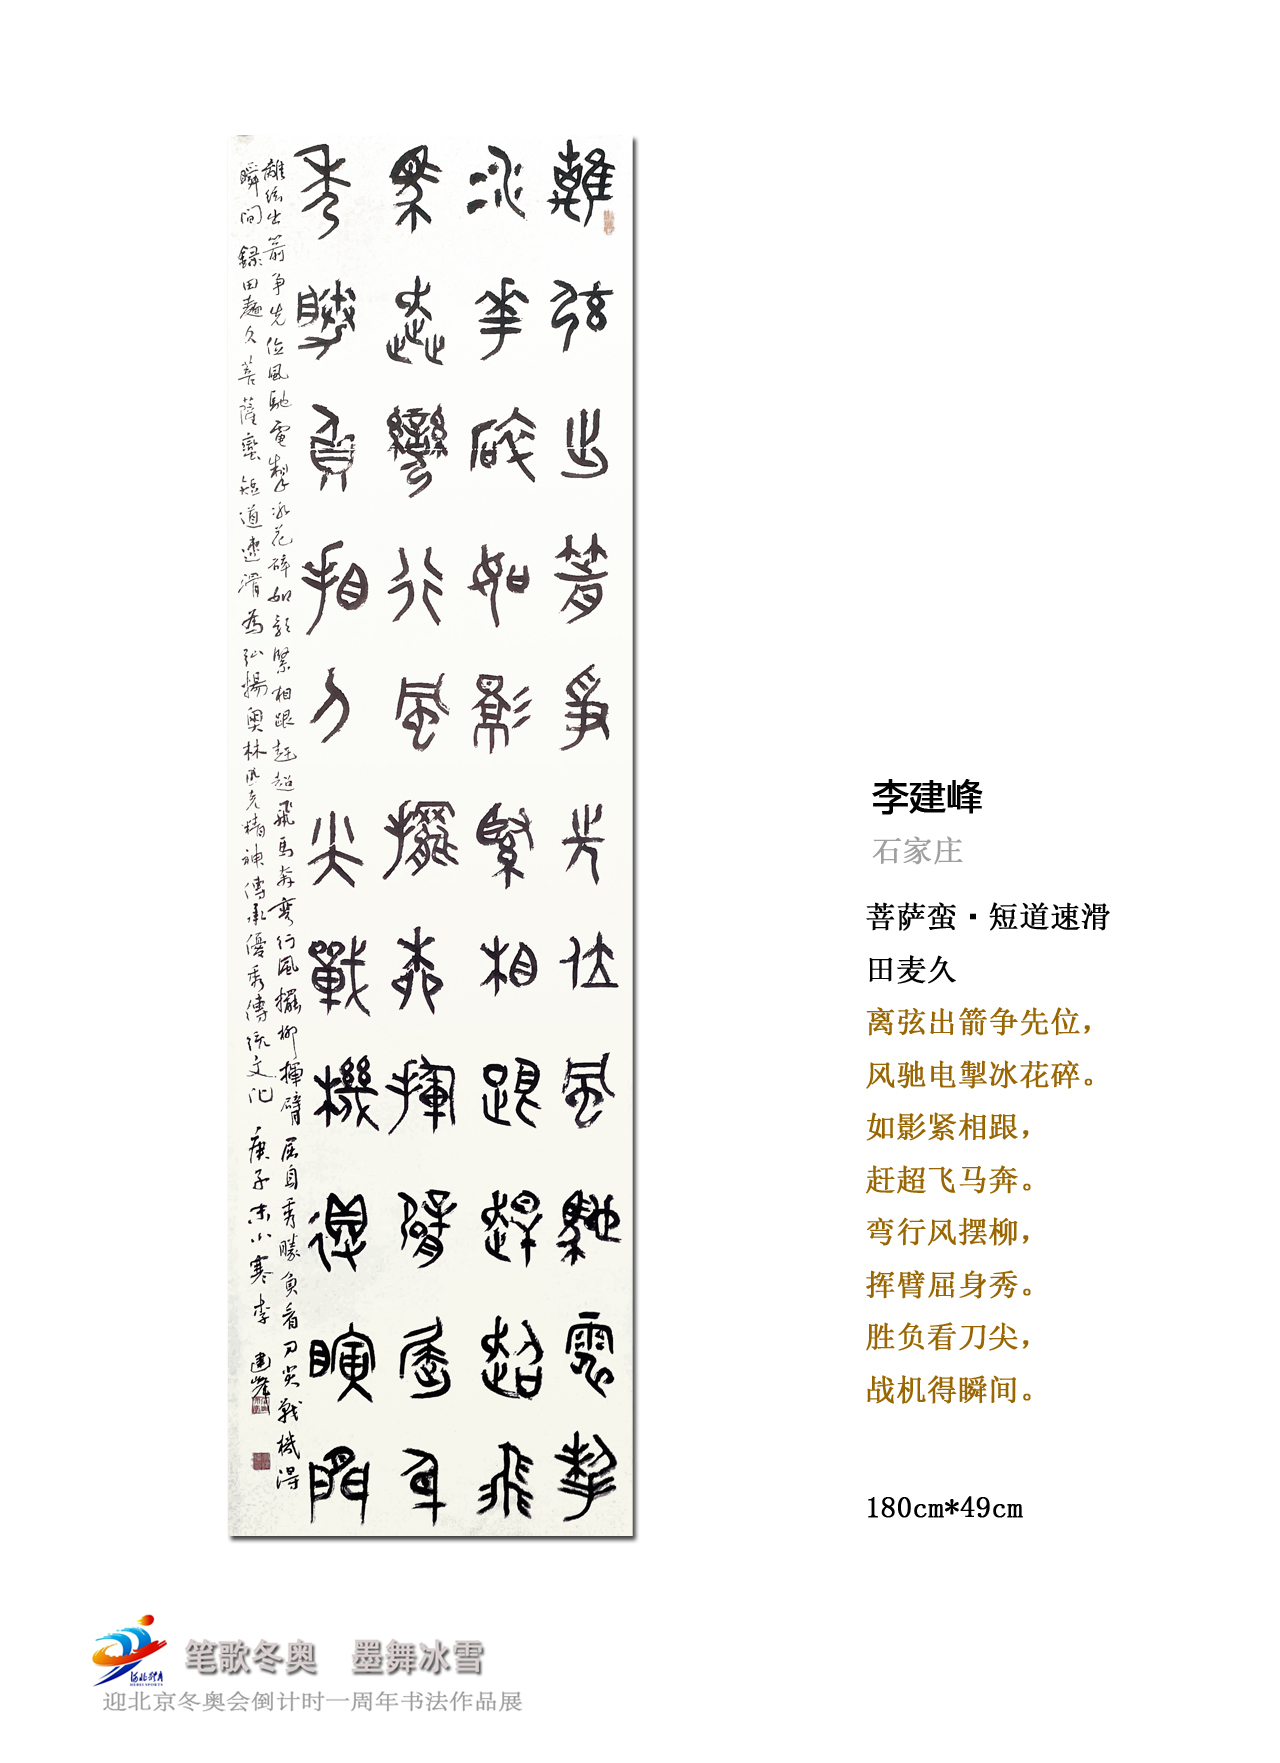 離弦出箭爭先位風馳電掣
冰花碎如影緊相跟趕超飛
馬奔彎行風擺柳揮臂屈身
秀勝負看刀尖戰機得瞬間
離弦出箭争先位風馳電掣冰花碎如影緊相跟赶超飛馬奔彎行風擺柳揮臂屈身秀勝負看刀尖戰機得
瞬間 錄田麥久菩薩蠻短道速滑為弘揚奧林匹克精神傳承優秀傳統文化 庚子末小寒李建峰
李建峰
石家庄
菩萨蛮·短道速滑
田麦久
离弦出箭争先位，
风驰电掣冰花碎。
如影紧相跟，
赶超飞马奔。
弯行风摆柳，
挥臂屈身秀。
胜负看刀尖，
战机得瞬间。
180cm*49cm
河北体育
HEBEI SPORTS
笔歌冬奥 墨舞冰雪
迎北京冬奥会倒计时一周年书法作品展